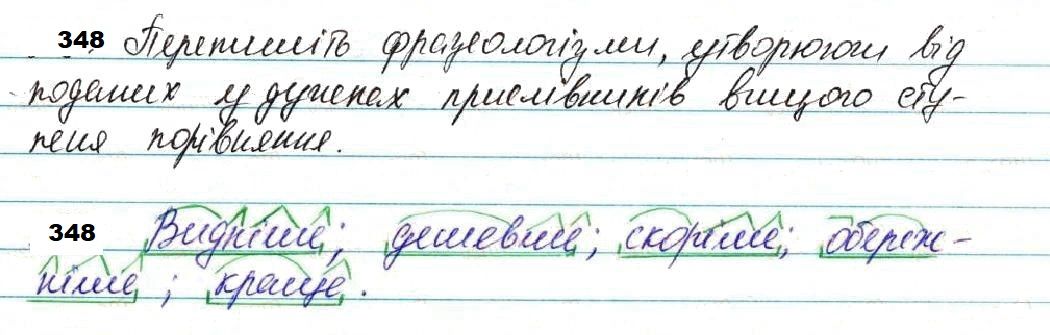 348 Перепишіть фразеологізми, утворюючи від
поданих у дужках прислівників вищого сту-
пеня порівняння.
348 Видніше; дешевше; скоріше; обереж-
ніше; краще.